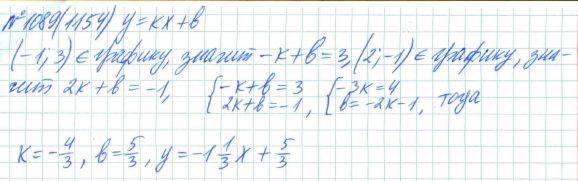 №1089(1154) y = kx + b
(-1; 3) ∈ графику, значит -k + b = 3, (2; -1) ∈ графику, зна-
чит 2k + b = -1, { -k + b = 3 2k + b = -1 , { -3k = 4 b = -2k - 1 , тогда
k = -4/3, b = 5/3, y = -1 1/3 x + 5/3